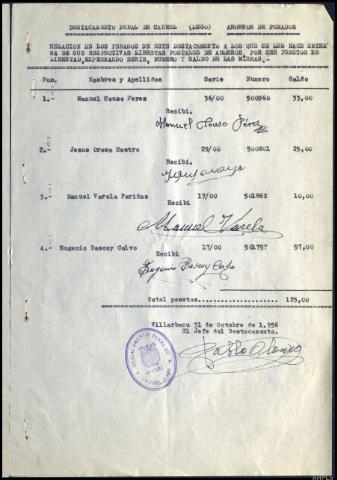 DESTACAMENTO PENAL DE CAUREL (LUGO) AHORROS DE PENADOS
RELACION DE LOS PENADOS DE ESTE DESTACAMENTO A LOS QUE SE LES HACE ENTRE
GA DE SUS RESPECTIVAS LIBRETAS POSTALES DE AHORROS, POR SER PUESTOS EN
LIBERTAD, EXPRESANDO SERIE, NUMERO Y SALDO DE LAS MISMAS.
Num. Nombres y Apellidos Serie Numero Saldo
1.- Manuel Couso Perez 36/00 500960 33,00
Recibi.
Manuel Couso Pérez
2.- Jesus Oroza Castro 29/00 500801 25,00
Recibi.
3.- Manuel Varela Fariñas 17/00 501862 10,00
Recibi
Manuel Varela
4.- Eugenio Bascoy Calvo 17/00 501757 57,00
Recibi
Eugenio Bascoy Calvo
Total pesetas.................... 125,00
Villarbacu 31 de Octubre de 1.956
El Jefe del Destacamento.
Pablo Alonso
DESTACAMENTO PENAL DE
AHPLU